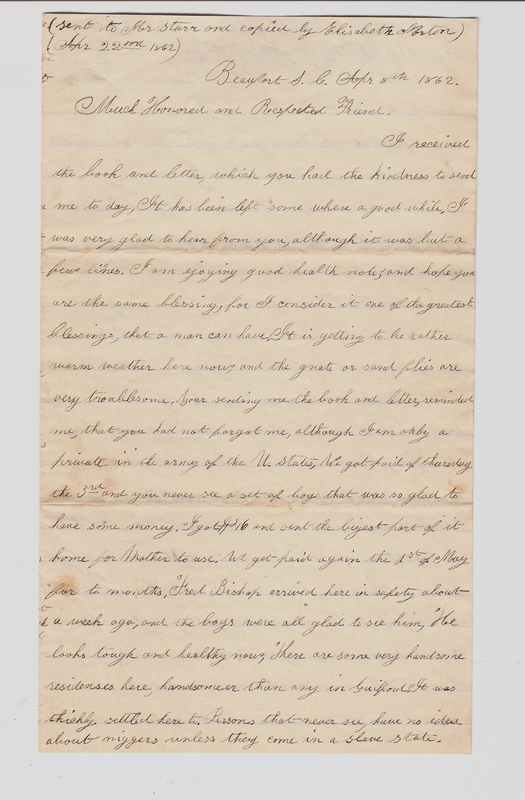 (sent to Mr Starr and copied by Elisabeth Norton)
(Apr 22nd 1862)
Beaufort S. C. Apr 8th 1862.
Much Honored and Respected Friend.
I received
the book and letter, which you had the kindness to send
me to day, It has been left some where a good while, I
was very glad to hear from you, although it was but a
few lines. I am ejoying good health now, and hope you
are the same blessing, for I consider it one of the greatest
blessings, that a man can have, It is getting to be rather
warm weather here now, and the gnats or sand flies are
very troublesome, Your sending me the book and letter, reminded
me, that you had not forgot me, although I am only a
private in the army of the U. States, We got paid of thursday
the 3rd and you never see a set of boys that was so glad to
have some money. I got $26 and sent the bigest part of it
home for Mother to use. We get paid again the 1st of May
for to months, Fred Bishop errived here in safety about
a week ago, and the boys were all glad to see him, He
looks tough and healthy now, There are some very handsome
residenses here, handsomeer than any in Guilford, It was
thickly settled here to, Persons that never see, have no idear
about niggers unless they come in a slave state.